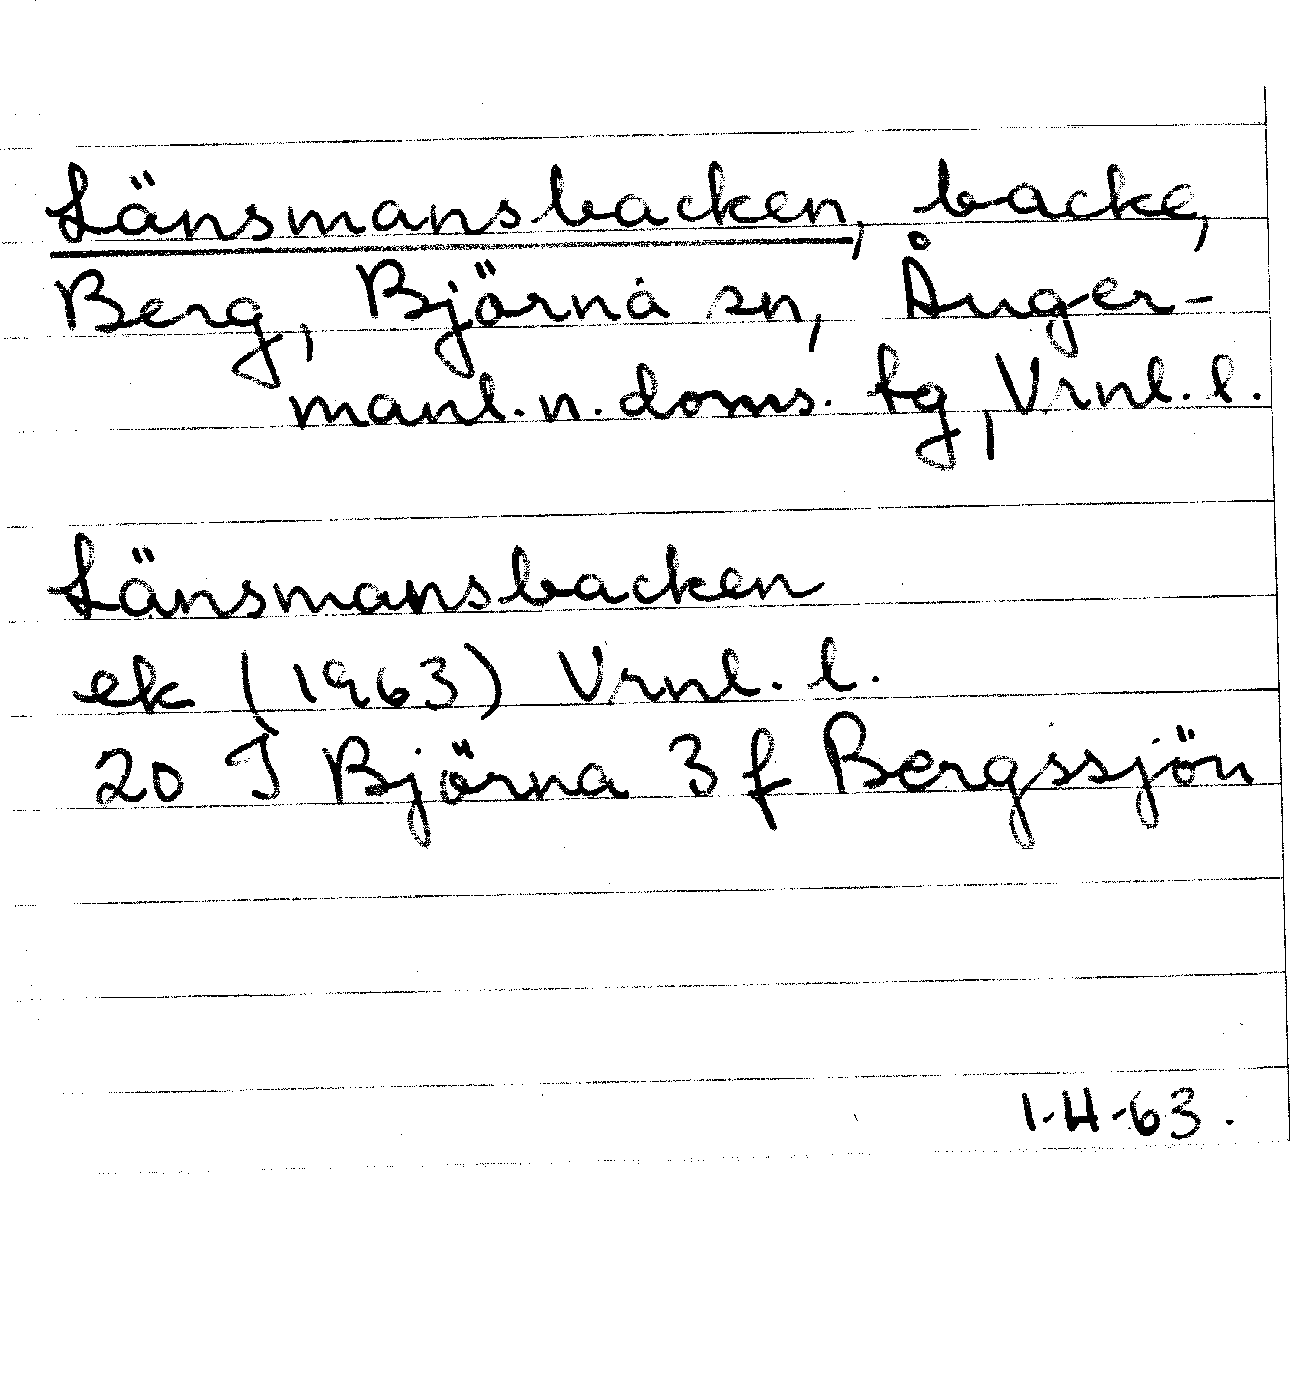 Länsmansbacken, backe,
Berg, Björna sn, Ånger-
manl. n. doms. tg, Vrnl. l.
Länsmansbacken
ek (1963) Vrnl. l.
20 I Björna 3 f Bergssjön
1-H-63.